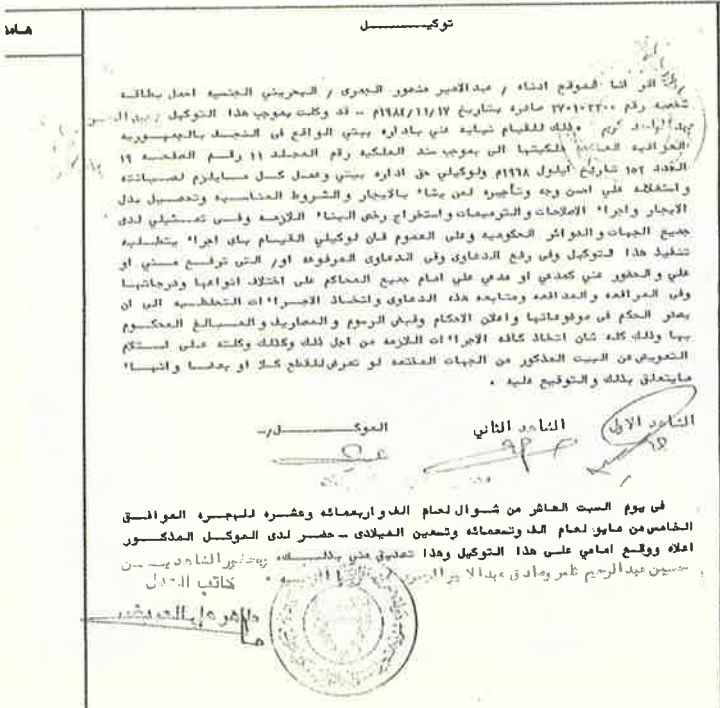 هامش
توكيـــــــــل
اقر انا الموقع ادناه / عبدالامير منصور الجمرى / البحريني الجنسيه احمل بطاقه
شخصيه رقم ٢٧٠١٠٢٢٠٠ صادره بتاريخ ١٩٨٤/١١/١٧م – قد وكلت بموجب هذا التوكيل /
كريم وذلك للقيام نيابه عني باداره بيتي الواقع فى النجف بالجمهوريه
العراقيه العائد ملكيتها الى بموجب سند الملكيه رقم المجلد ١١ رقم الصفحه ١٩
العدد ١٥٢ تاريخ ايلول ١٩٦٨م ولوكيلي حق اداره بيتي وعمل كل مايلزم لصيانته
واستغلاله علي احسن وجه وتأجيره لمن يشاء بالايجار والشروط المناسبه وتحصيل بدل
الايجار واجراء الاصلاحات والترميمات واستخراج رخص البناء اللازمه وفى تمثيلي لدى
جميع الجهات والدوائر الحكوميه وعلى العموم فان لوكيلي القيام باى اجراء يتطلبه
تنفيذ هذا التوكيل وفى رفع الدعاوى وفى الدعاوى المرفوعه او/ التى ترفع مني او
علي والحضور عني كمدعي او مدعي علي امام جميع المحاكم على اختلاف انواعها ودرجاتها
وفى المرافعه والمدافعه ومتابعه هذه الدعاوى واتخاذ الاجراءات التحفظيه الى ان
يصدر الحكم فى موضوعاتها واعلان الاحكام وقبض الرسوم والمصاريف والمبالغ المحكوم
بها وذلك كله شان اتخاذ كافه الاجراءات اللازمه من اجل ذلك وكذلك وكلته على استلام
التعويض عن البيت المذكور من الجهات المختصه لو تعرض للقطع كلا او بعضا وانهاء
مايتعلق بذلك والتوقيع عليه .
الشاهد الاول الشاهد الثاني الموكـــــــل/ــ
فى يوم السبت العاشر من شوال لعام الف واربعمائه وعشره للهجره الموافق
الخامس من مايو لعام الف وتسعمائه وتسعين الميلادى – حضر لدى الموكل المذكور
اعلاه ووقع امامي على هذا التوكيل وهذا تصديق مني بذلك وبحضور الشاهدين
حسين عبدالرحيم وصادق عبدالامير
كاتب العدل